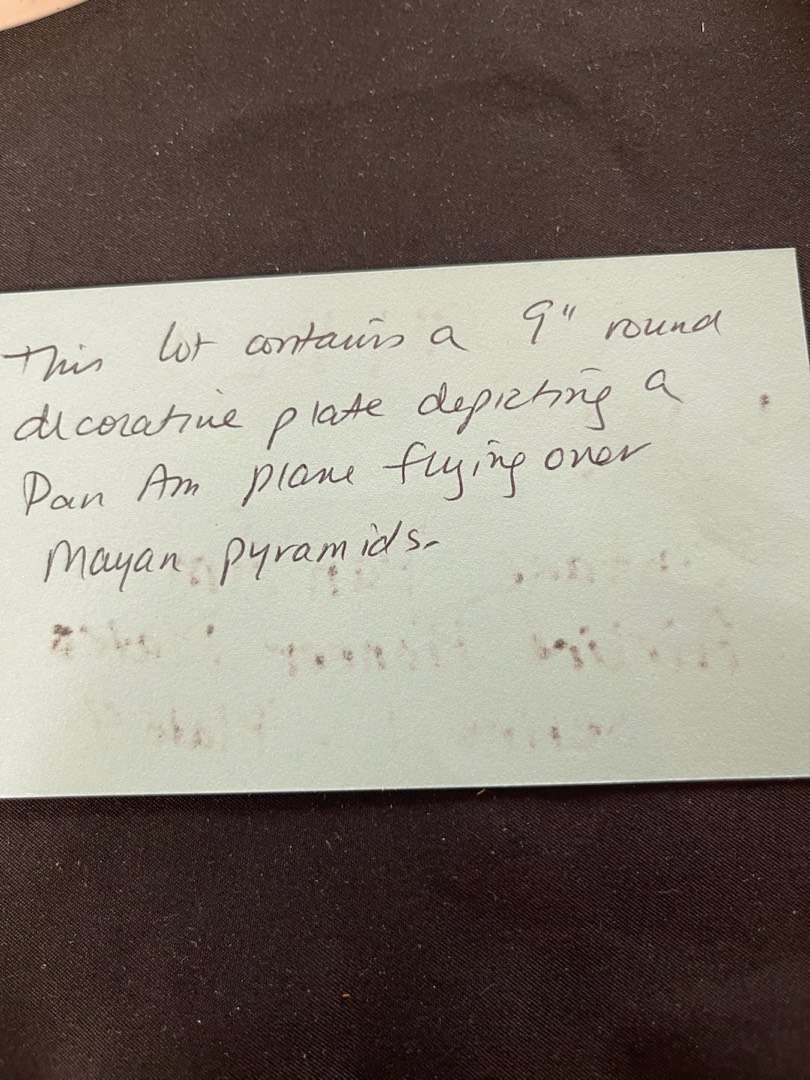 This lot contains a 9" round
decorative plate depicting a
Pan Am plane flying over
Mayan pyramids.